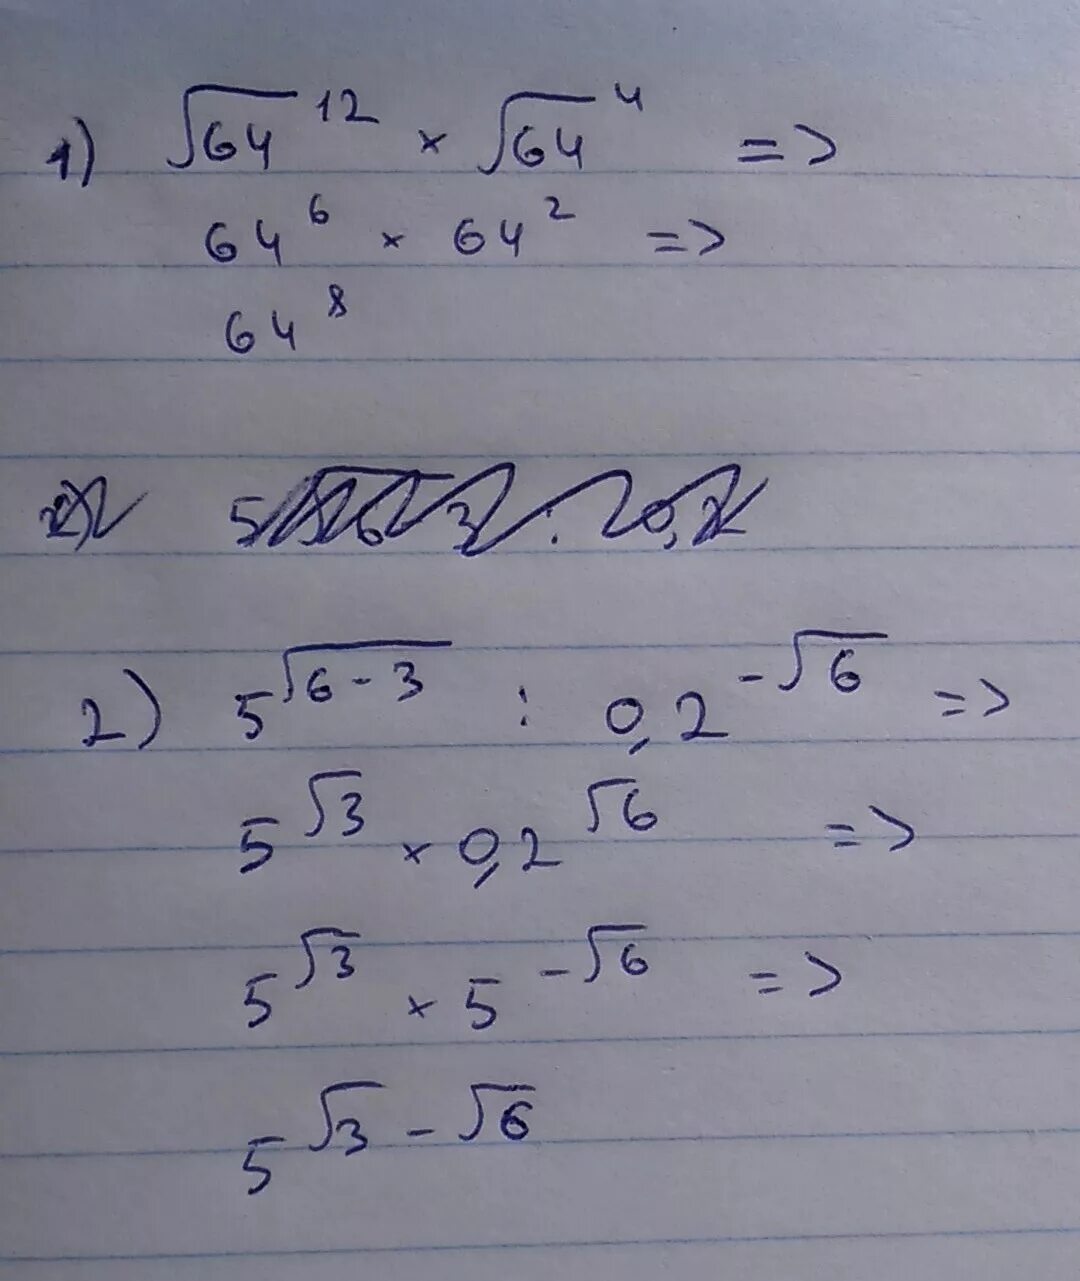 1) √64^12 × √64^4 =>
64^6 × 64^2 =>
64^8
2) 5^√(6-3) : 0,2^-√6 =>
5^√3 × 0,2^√6 =>
5^√3 × 5^-√6 =>
5^√3 - √6